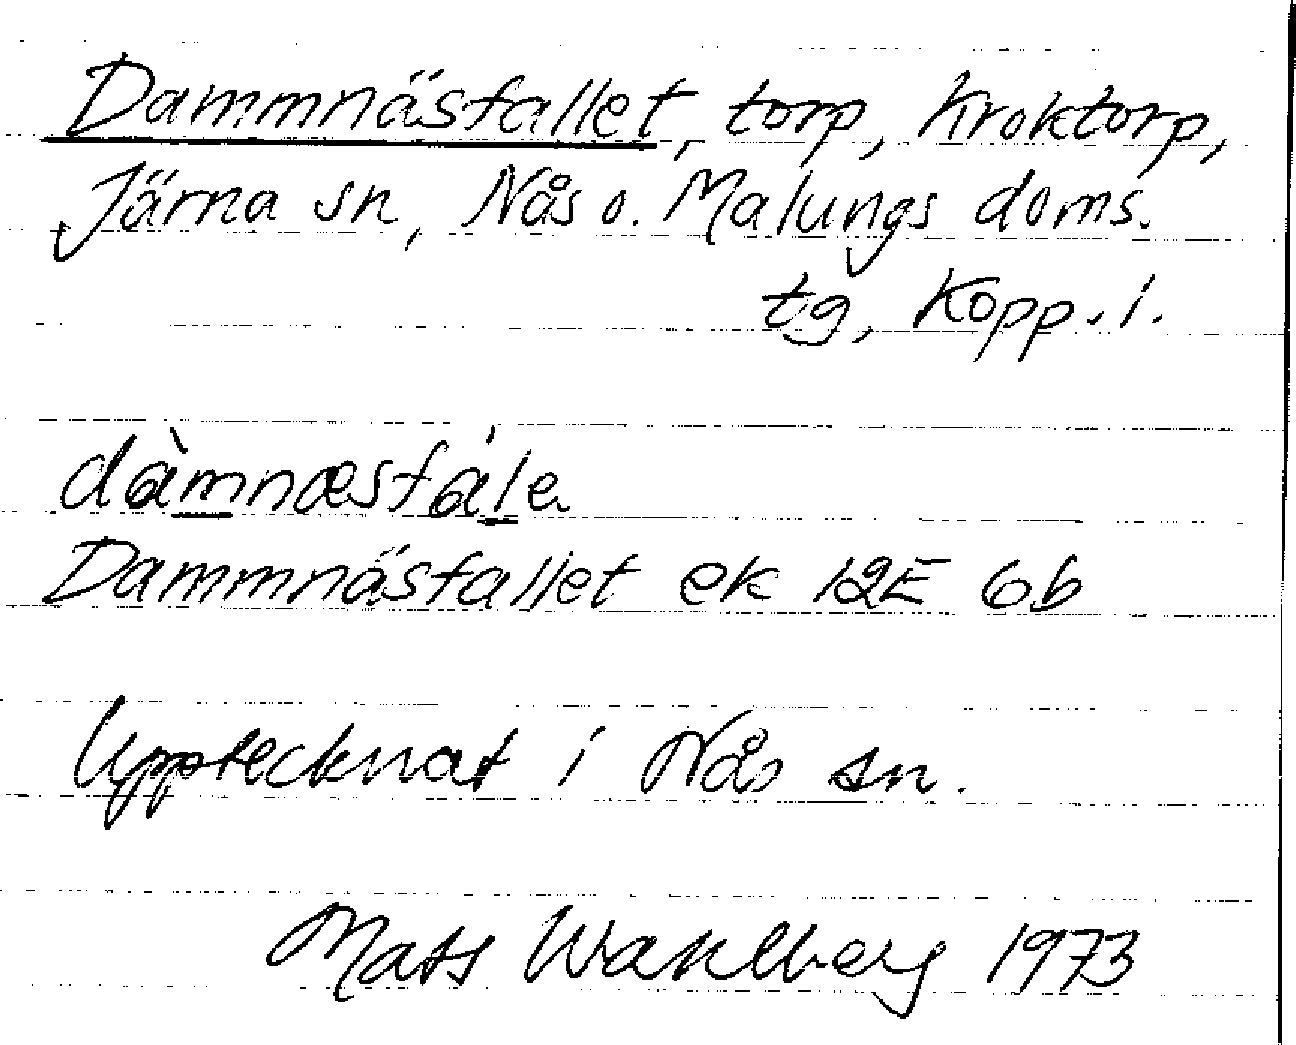 Dammnäsfallet, torp, Kroktorp,
Järna sn, Nås o. Malungs doms.
tg, Kopp. l.
dàmnæsfále
Dammnäsfallet ek 12E 6b
Upptecknat i Nås sn.
Mats Wahlberg 1973